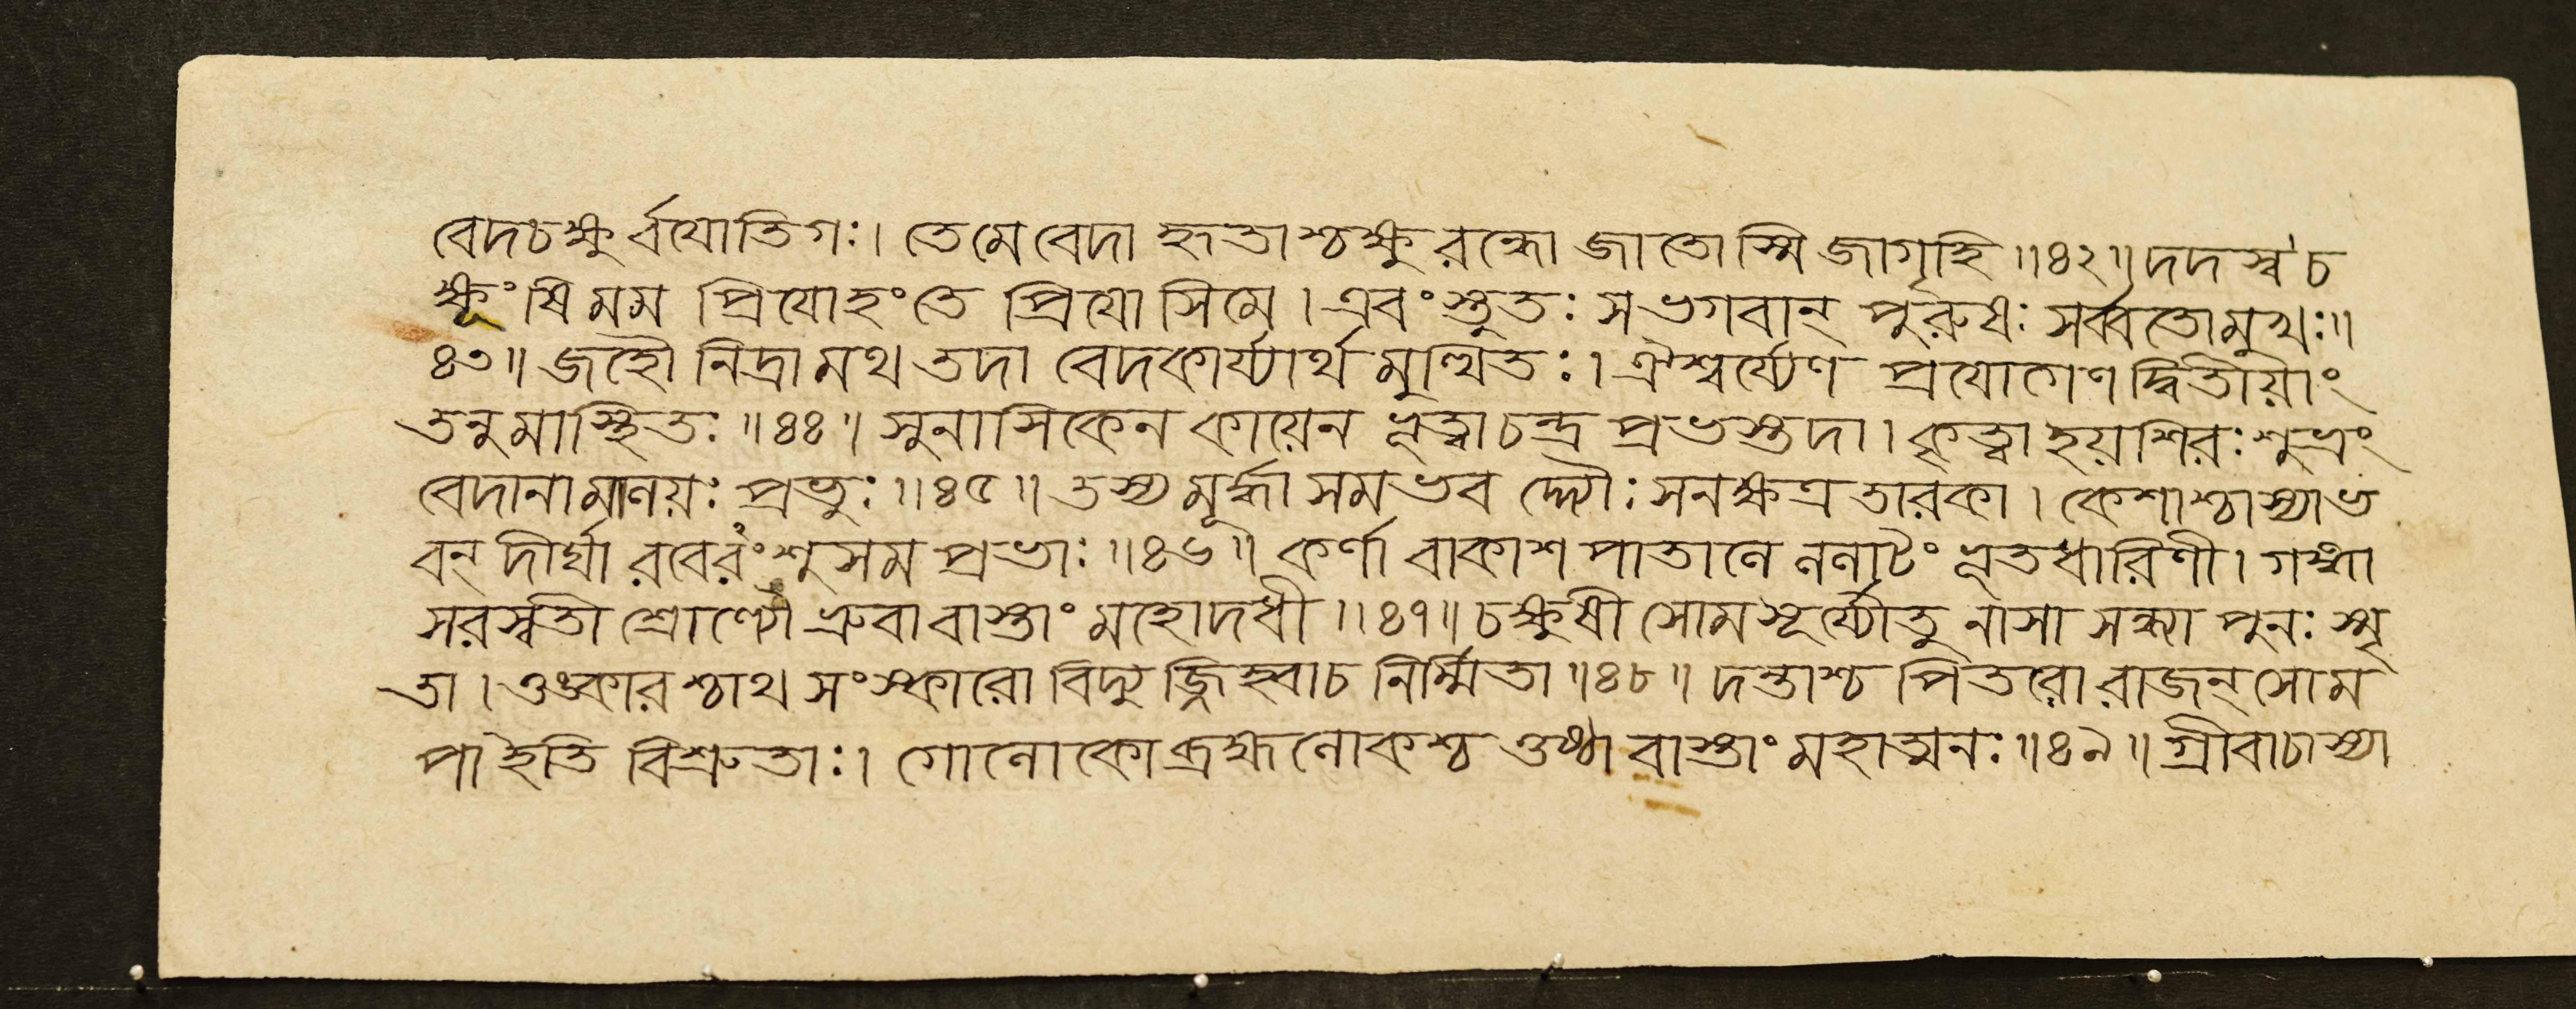 বেদচক্ষুর্বযোতিগঃ। তেমেবেদা হৃতাশ্চক্ষুরন্ধো জাতোস্মি জাগৃহি॥৪২॥দদস্ব চ
ক্ষূংষি মম প্রিযোহং তে প্রিযোসিমে। এবং স্তুতঃ সভগবান্ পুরুষঃ সর্ব্বতোমুখঃ॥
৪৩॥ জহৌ নিদ্রামথ তদা বেদকার্য্যার্থমুত্থিতঃ। ঐশ্বর্য্যেণ প্রযোগেণ দ্বিতীয়াং
তনুমাস্থিতঃ॥৪৪॥ সুনাসিকেন কায়েন ভূত্বা চন্দ্রপ্রভস্তদা। কৃত্বা হয়শিরঃ শুভ্রং
বেদানামালয়ঃ প্রভুঃ॥৪৫॥ তস্য মূর্দ্ধা সমভবদ্দ্যৌঃ সনক্ষত্রতারকা। কেশাশ্চাস্যাভ
বন্ দীর্ঘা রবেরংশুসমপ্রভাঃ॥৪৬॥ কর্ণাবাকাশপাতালে ললাটং ভূতধারিণী। গঙ্গা
সরস্বতী শ্রোণ্যৌ ভ্রুবাবাস্তাং মহোদধী॥৪৭॥ চক্ষুষী সোমসূর্য্যৌতু নাসা সন্ধ্যা পুনঃ স্মৃ
তা। ওঙ্কারশ্চাথ সংস্কারো বিদ্যুজ্জিহ্বাচ নির্ম্মিতা॥৪৮॥ দন্তাশ্চ পিতরো রাজন্ সোম
পা ইতি বিশ্রুতাঃ। গোলোকো ব্রহ্মলোকশ্চ ওষ্ঠাবাস্তাং মহাত্মনঃ॥৪৯॥ গ্রীবাচাস্যা